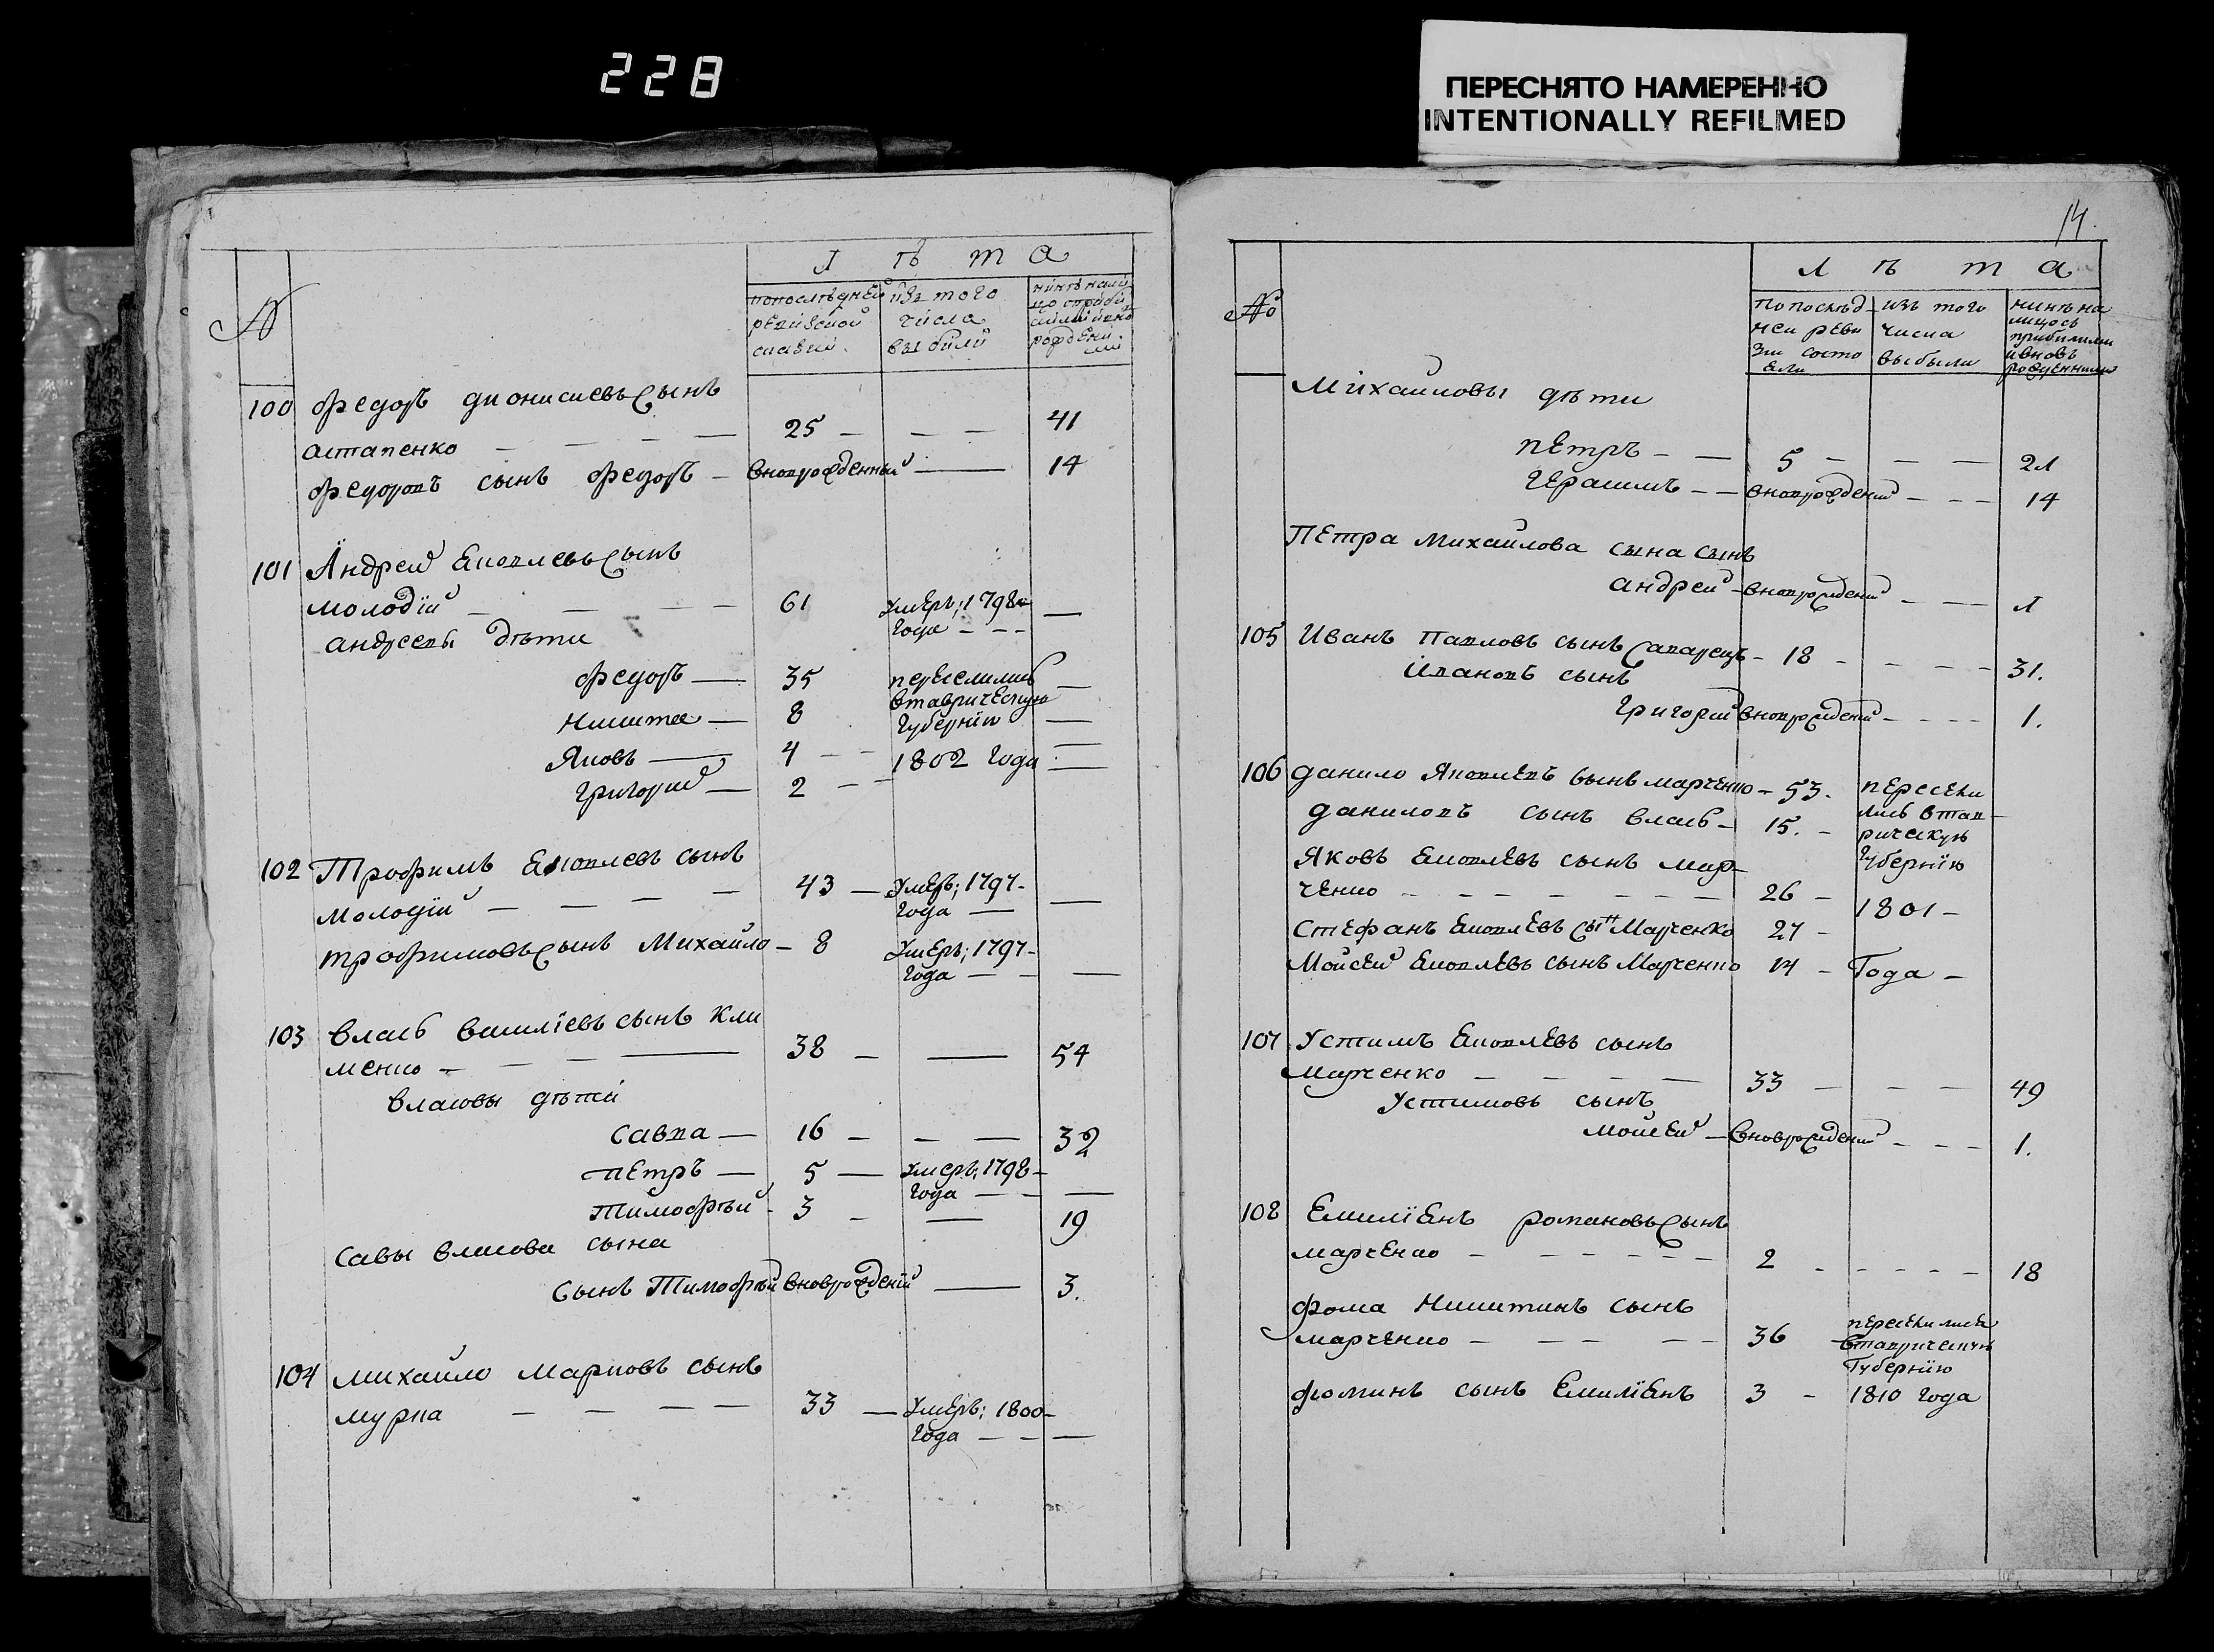 228
ПЕРЕСНЯТО НАМЕРЕННО
INTENTIONALLY REFILMED
№
Л ѣ т а
попослѣдней ревизской
изъ того числа выбили
100 Федоръ Дионисиевъ Сынъ
Астапенко — 25 — — — 41
Федоровъ сынъ Федоръ — вновърожденный — 14
101 Андрей Яковлевъ Сынъ
Молодїй — 61 Умеръ; 1798го Года —
Андреевы Дѣти
Федоръ — 35 переселились —
Никита — 8 втаврическую Губернїю —
Яковъ — 4 — 1802 Года —
Григорий — 2 — —
102 Трофимъ Яковлевъ сынъ
Молодїй — 43 — Умеръ; 1797 Года —
трофимовъ Сынъ Михайло — 8 Умеръ; 1797 Года —
103 Власъ Василїевъ сынъ Кли
менко — 38 — — 54
Власовы дѣти
Савва — 16 — — 32
Петръ — 5 — Умеръ; 1798 Года —
Тимофѣй — 3 — — 19
Савы Власова сына
Сынъ Тимофѣй вноврожденїй — 3.
104 Михайло Марковъ сынъ
Мурка — 33 — Умеръ; 1800 Года —
14.
№
Л ѣ т а
по послѣд ней реви зїи состо яли
изъ того числа выбыли
нинѣ на лицось прибилими ивновь рожденними
Михайловы дѣти
Петръ — 5 — — 21
Герасимъ — вноврожденїй — 14
Петра Михайлова сына сынъ
Андрей — вноврожденїй — 1
105 Иванъ Павловъ сынъ — 18 — 31.
Ивановъ сынъ
Григорий вноврожденїй — 1.
106 Данило Яковлевъ сынъ Марченко — 53. пересели
Даниловъ сынъ Власъ — 15. — лись втав
рическую
Яковъ Яковлевъ сынъ Мар Губернїю
ченко — 26 — 1801 —
Стефанъ Яковлевъ Сынъ Марченко 27 —
Мойсей Яковлевъ сынъ Марченко 14 — Года —
107 Устимъ Яковлевъ сынъ
Марченко — 33 — 49
Устимовъ сынъ
Мойсей — вноврожденїй — 1.
108 Емилїянъ Романовъ Сынъ
Марченко — 2 — 18
Фома Никитинъ сынъ переселились
Марченко — 36 — втаврическую
Губернїю
Фоминъ сынъ Емилїянъ 3 — 1810 Года